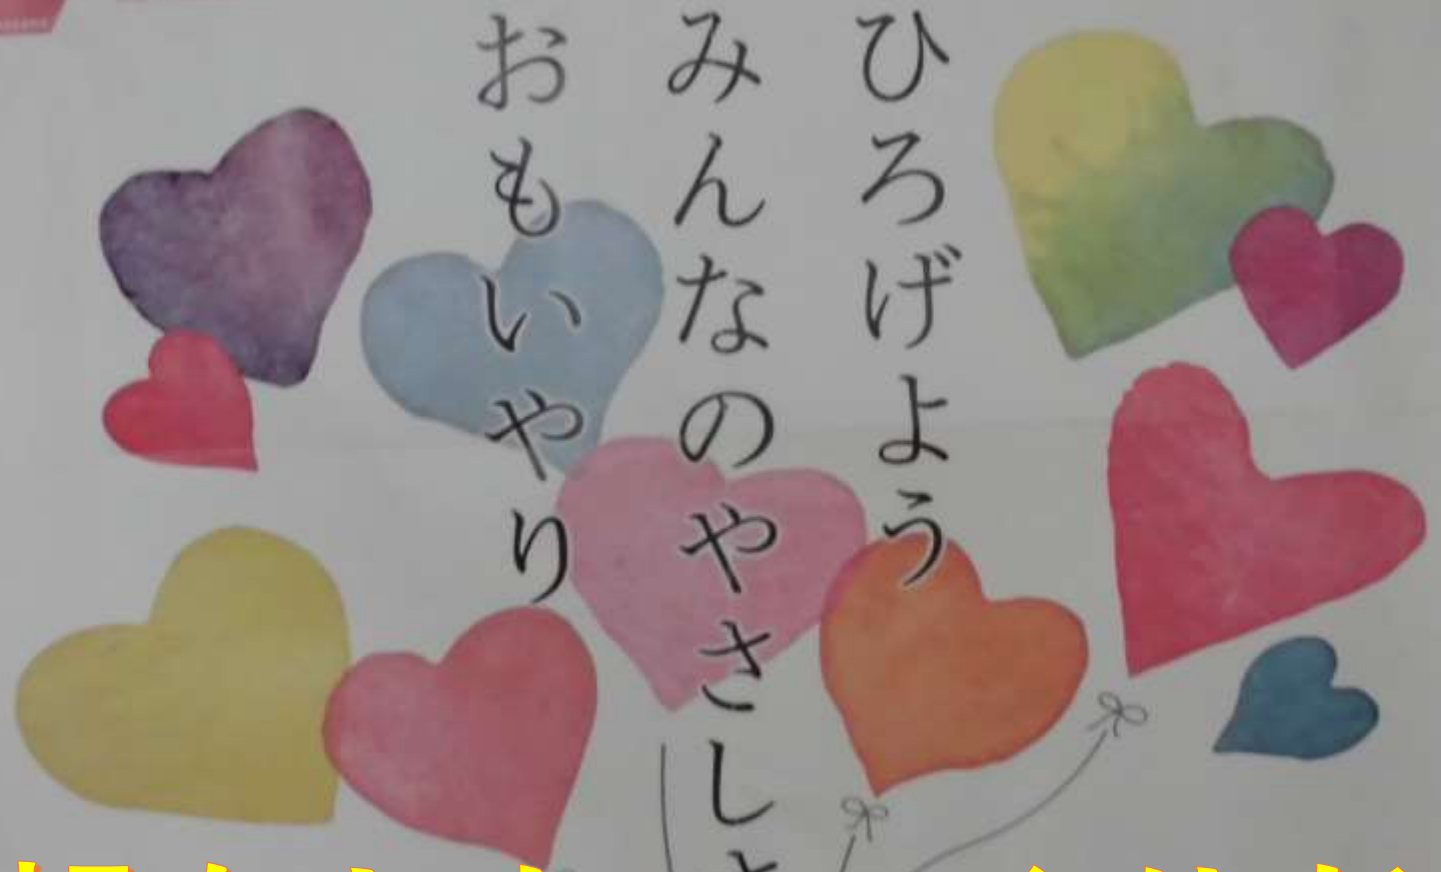 ひろげよう
みんなのやさしさ
おもいやり